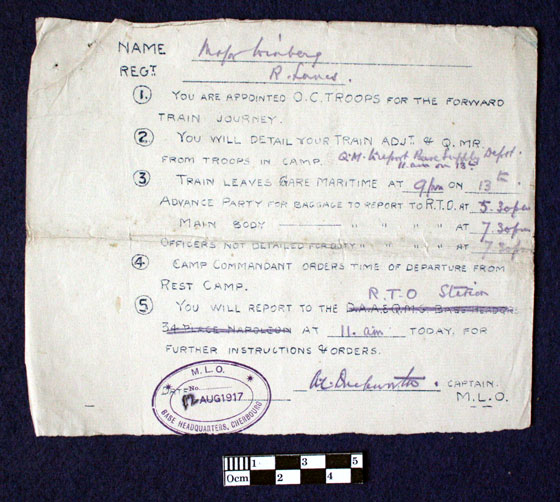 NAME Major Wimberg
REGT. R. Lancs.
1. YOU ARE APPOINTED O.C. TROOPS FOR THE FORWARD
TRAIN JOURNEY.
2. YOU WILL DETAIL YOUR TRAIN ADJT. & Q.MR.
FROM TROOPS IN CAMP. Q.M. to report Base Supply Depot.
11. am on 13th
3. TRAIN LEAVES GARE MARITIME AT 9pm ON 13th.
ADVANCE PARTY FOR BAGGAGE TO REPORT TO R.T.O. AT 5.30pm
MAIN BODY ——— " " " " AT 7.30pm
OFFICERS NOT DETAILED FOR DUTY " " " " AT 7.30pm
4. CAMP COMMANDANT ORDERS TIME OF DEPARTURE FROM
REST CAMP.
R.T.O Station
5. YOU WILL REPORT TO THE D.A.A. & Q.M.G. BASE HEADQRS.
34 PLACE NAPOLEON AT 11. am TODAY, FOR
FURTHER INSTRUCTIONS & ORDERS.
Duckworth. CAPTAIN.
M.L.O.
M.L.O.
No.
DATE
12 AUG 1917
BASE HEADQUARTERS, CHERBOURG
1 3 5
0cm 2 4